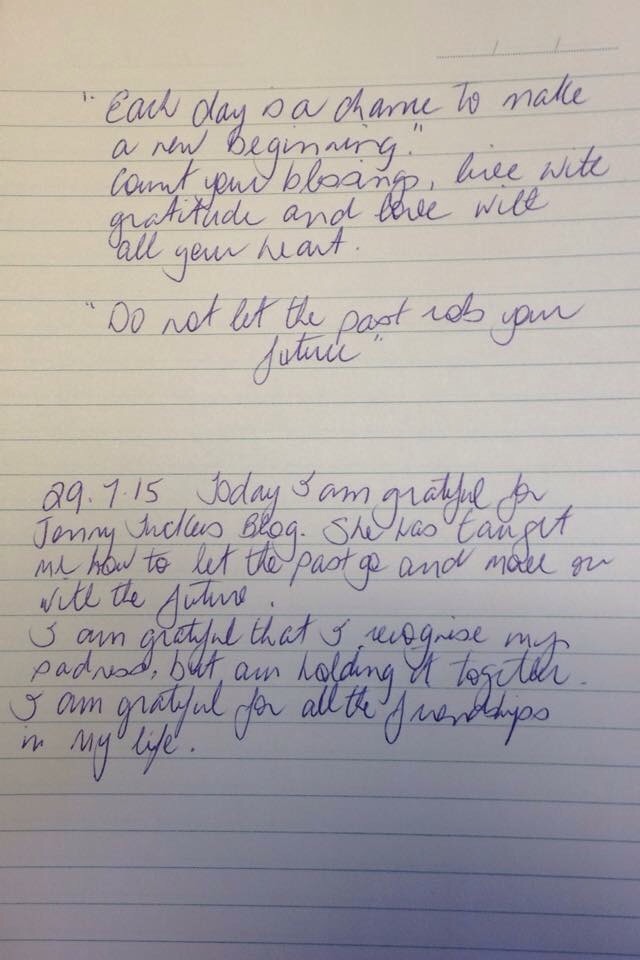 "Each day is a chance to make
a new beginning."
Count your blessings, live with
gratitude and love with
all your heart.
"Do not let the past rob your
future"
29.7.15 Today I am grateful for
Jenny Tuckers Blog. She has taught
me how to let the past go and move on
with the future.
I am grateful that I recognise my
sadness, but am holding it together.
I am grateful for all the friendships
in my life.